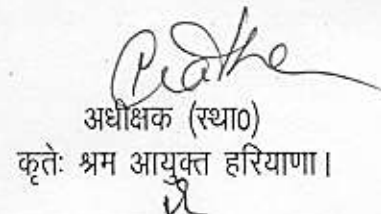 अधीक्षक (स्था0)
कृतेः श्रम आयुक्त हरियाणा।